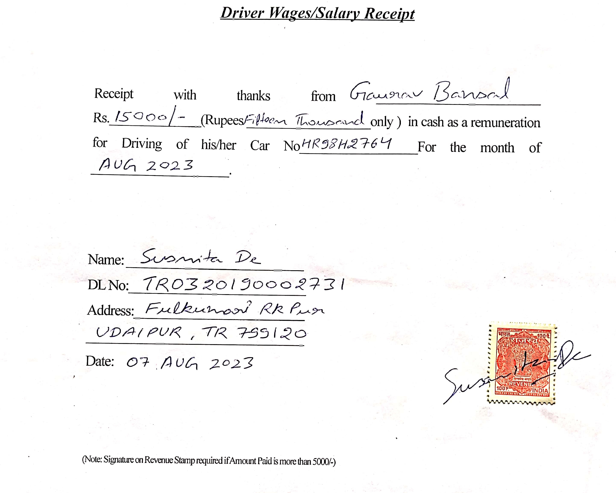 Driver Wages/Salary Receipt
Receipt with thanks from Gaurav Bansal
Rs. 15000/- (Rupees Fifteen Thousand only ) in cash as a remuneration
for Driving of his/her Car No HR98H2764 For the month of
AUG 2023.
Name: Susmita De
DL No: TR0320190002731
Address: Fulkumari RK Pur
UDAIPUR, TR 799120
Date: 07 AUG 2023
Susmita De
REVENUE
INDIA
(Note: Signature on Revenue Stamp required if Amount Paid is more than 5000/-)